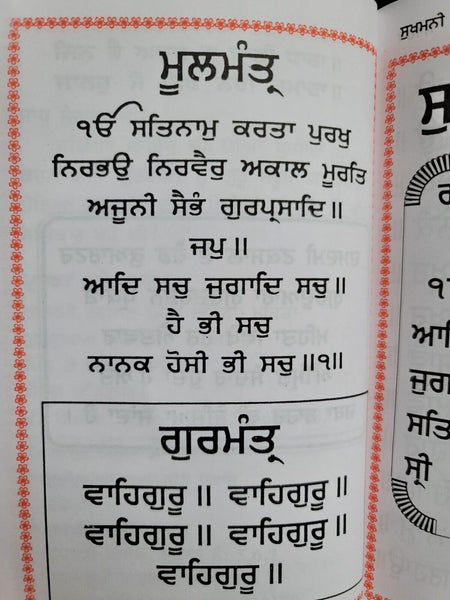 ਮੂਲਮੰਤ੍ਰ
ੴ ਸਤਿਨਾਮੁ ਕਰਤਾ ਪੁਰਖੁ
ਨਿਰਭਉ ਨਿਰਵੈਰੁ ਅਕਾਲ ਮੂਰਤਿ
ਅਜੂਨੀ ਸੈਭੰ ਗੁਰਪ੍ਰਸਾਦਿ॥
ਜਪੁ॥
ਆਦਿ ਸਚੁ ਜੁਗਾਦਿ ਸਚੁ॥
ਹੈ ਭੀ ਸਚੁ
ਨਾਨਕ ਹੋਸੀ ਭੀ ਸਚੁ॥੧॥
ਗੁਰਮੰਤ੍ਰ
ਵਾਹਿਗੁਰੂ॥ ਵਾਹਿਗੁਰੂ॥
ਵਾਹਿਗੁਰੂ॥ ਵਾਹਿਗੁਰੂ॥
ਵਾਹਿਗੁਰੂ॥
ਸੁਖਮਨੀ
ਸ੍ਰੀ